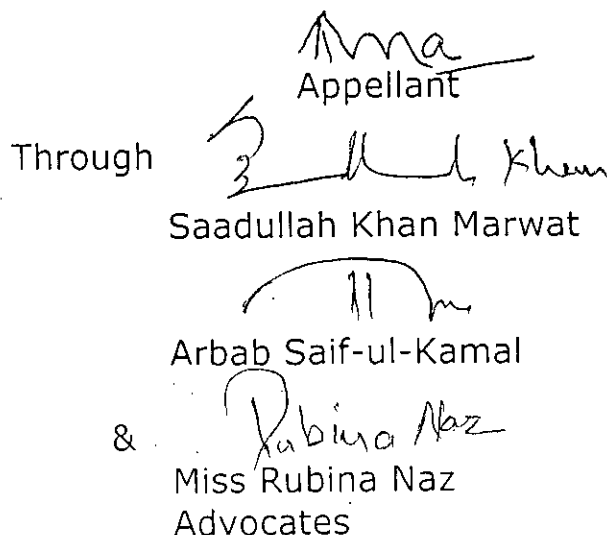 Appellant
Through
Khan
Saadullah Khan Marwat
Arbab Saif-ul-Kamal
&
Rubina Naz
Miss Rubina Naz
Advocates